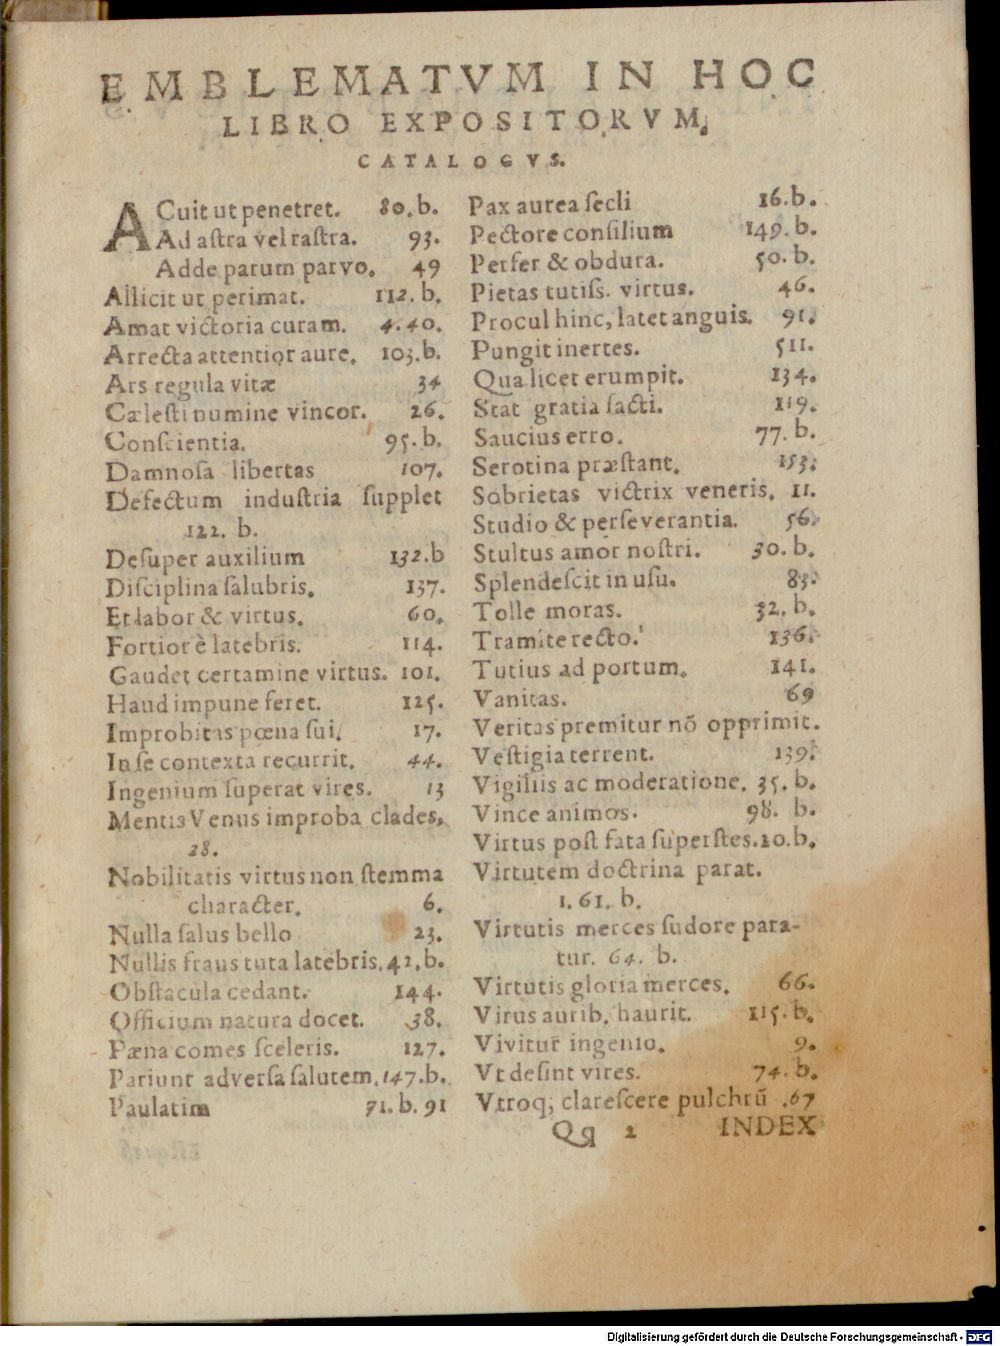 EMBLEMATVM IN HOC
LIBRO EXPOSITORVM,
CATALOGVS.
ACuit ut penetret. 80. b.
Ad astra vel rastra. 93.
Adde parum parvo. 49
Allicit ut perimat. 112. b.
Amat victoria curam. 4. 40.
Arrecta attentior aure. 103. b.
Ars regula vitæ 34
Cælesti numine vincor. 26.
Conscientia. 95. b.
Damnosa libertas 107.
Defectum industria supplet
122. b.
Desuper auxilium 132. b
Disciplina salubris. 137.
Et labor & virtus. 60.
Fortior è latebris. 114.
Gaudet certamine virtus. 101.
Haud impune feret. 125.
Improbitas pœna sui. 17.
In se contexta recurrit. 44.
Ingenium superat vires. 13
Mentis Venus improba clades.
28.
Nobilitatis virtus non stemma
character. 6.
Nulla salus bello 23.
Nullis fraus tuta latebris. 42. b.
Obstacula cedant. 144.
Officium natura docet. 38.
Pæna comes sceleris. 127.
Pariunt adversa salutem. 147. b.
Paulatim 71. b. 91
Pax aurea secli 16. b.
Pectore consilium 149. b.
Perfer & obdura. 50. b.
Pietas tutiss. virtus. 46.
Procul hinc, latet anguis. 91.
Pungit inertes. 511.
Qua licet erumpit. 134.
Stat gratia facti. 119.
Saucius erro. 77. b.
Serotina præstant. 153.
Sobrietas victrix veneris. 11.
Studio & perseverantia. 56.
Stultus amor nostri. 30. b.
Splendescit in usu. 83.
Tolle moras. 32. b.
Tramite recto. 136.
Tutius ad portum. 141.
Vanitas. 69
Veritas premitur nō opprimit.
Vestigia terrent. 139.
Vigiliis ac moderatione. 35. b.
Vince animos. 98. b.
Virtus post fata superstes. 20. b.
Virtutem doctrina parat.
1. 61. b.
Virtutis merces sudore para-
tur. 64. b.
Virtutis gloria merces. 66.
Virus aurib. haurit. 115. b.
Vivitur ingenio. 9.
Vt desint vires. 74. b.
Vtroq; clarescere pulchrū .67
Qq 2 INDEX
Digitalisierung gefördert durch die Deutsche Forschungsgemeinschaft - DFG